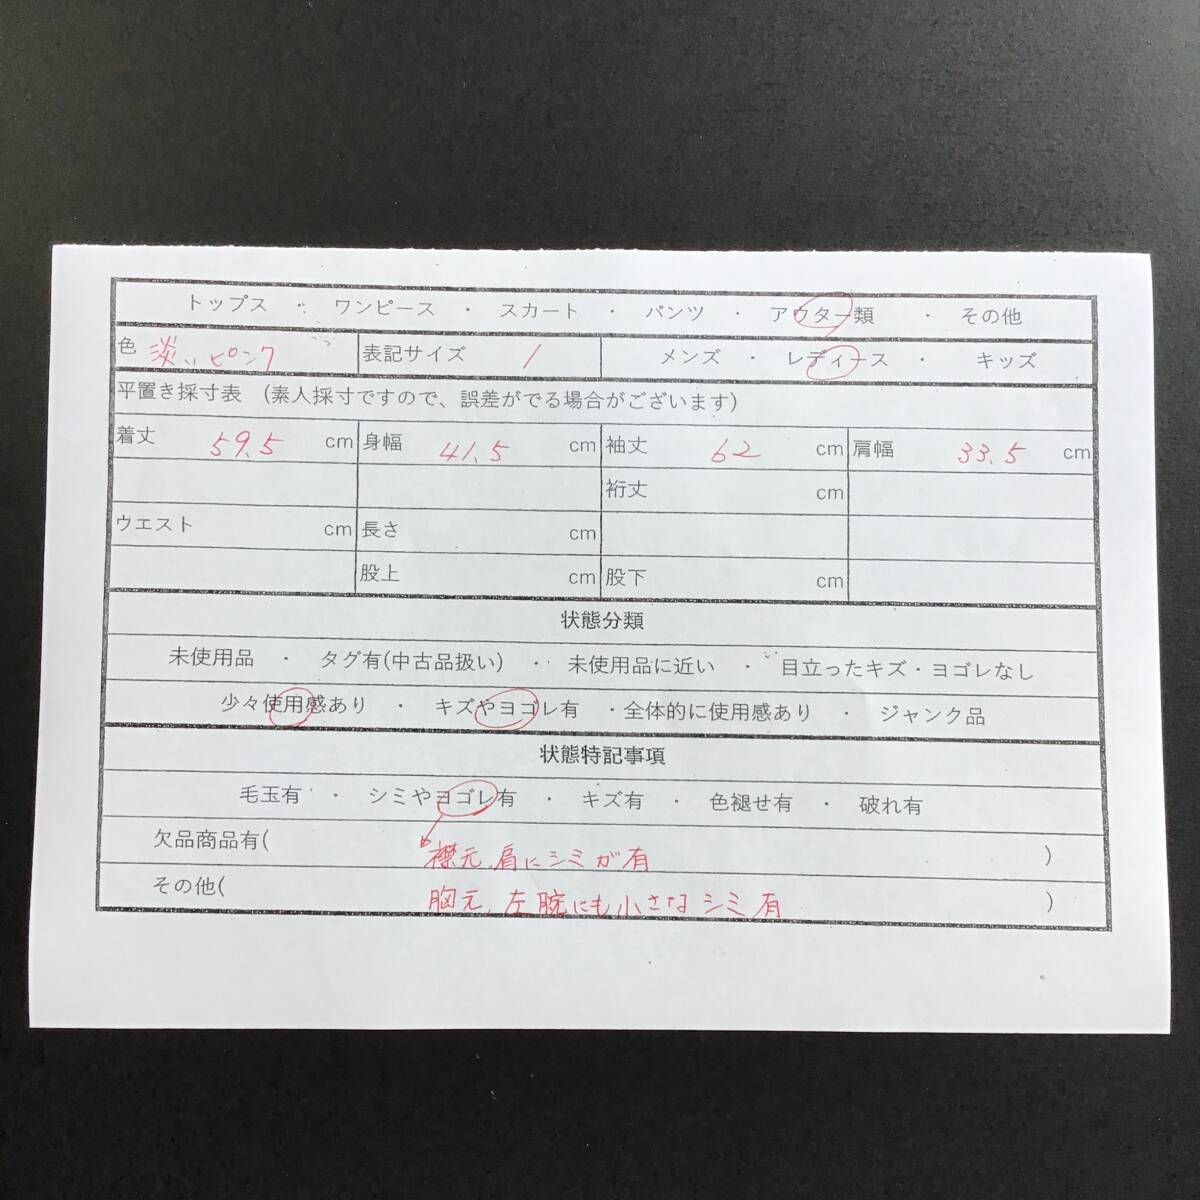 トップス ・ ワンピース ・ スカート ・ パンツ ・ アウター類 ・ その他
色 淡いピンク 表記サイズ 1 メンズ ・ レディース ・ キッズ
平置き採寸表 (素人採寸ですので、誤差がでる場合がございます)
着丈 59.5 cm 身幅 41.5 cm 袖丈 62 cm 肩幅 33.5 cm
裄丈 cm
ウエスト cm 長さ cm
股上 cm 股下 cm
状態分類
未使用品 ・ タグ有(中古品扱い) ・ 未使用品に近い ・ 目立ったキズ・ヨゴレなし
少々使用感あり ・ キズやヨゴレ有 ・全体的に使用感あり ・ ジャンク品
状態特記事項
毛玉有 ・ シミやヨゴレ有 ・ キズ有 ・ 色褪せ有 ・ 破れ有
欠品商品有( 襟元、肩にシミが有 )
その他( 胸元、左腕にも小さなシミ有 )